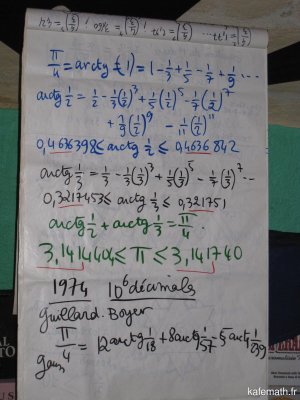 π/4 = arctg(1) = 1 - 1/3 + 1/5 - 1/7 + 1/9 ...
arctg 1/2 = 1/2 - 1/3(1/2)³ + 1/5(1/2)⁵ - 1/7(1/2)⁷
+ 1/9(1/2)⁹ - 1/11(1/2)¹¹
0,4636398 ≤ arctg 1/2 ≤ 0,4636842
arctg 1/3 = 1/3 - 1/3(1/3)³ + 1/5(1/3)⁵ - 1/7(1/3)⁷ ...
0,3217453 ≤ arctg 1/3 ≤ 0,321751
arctg 1/2 + arctg 1/3 = π/4.
3,1414404 ≤ π ≤ 3,141740
1974 10⁶ décimales
Guillard. Boyer
π/4 = 12 arctg 1/18 + 8 arctg 1/57 - 5 arctg 1/239
gauss
kafemath.fr